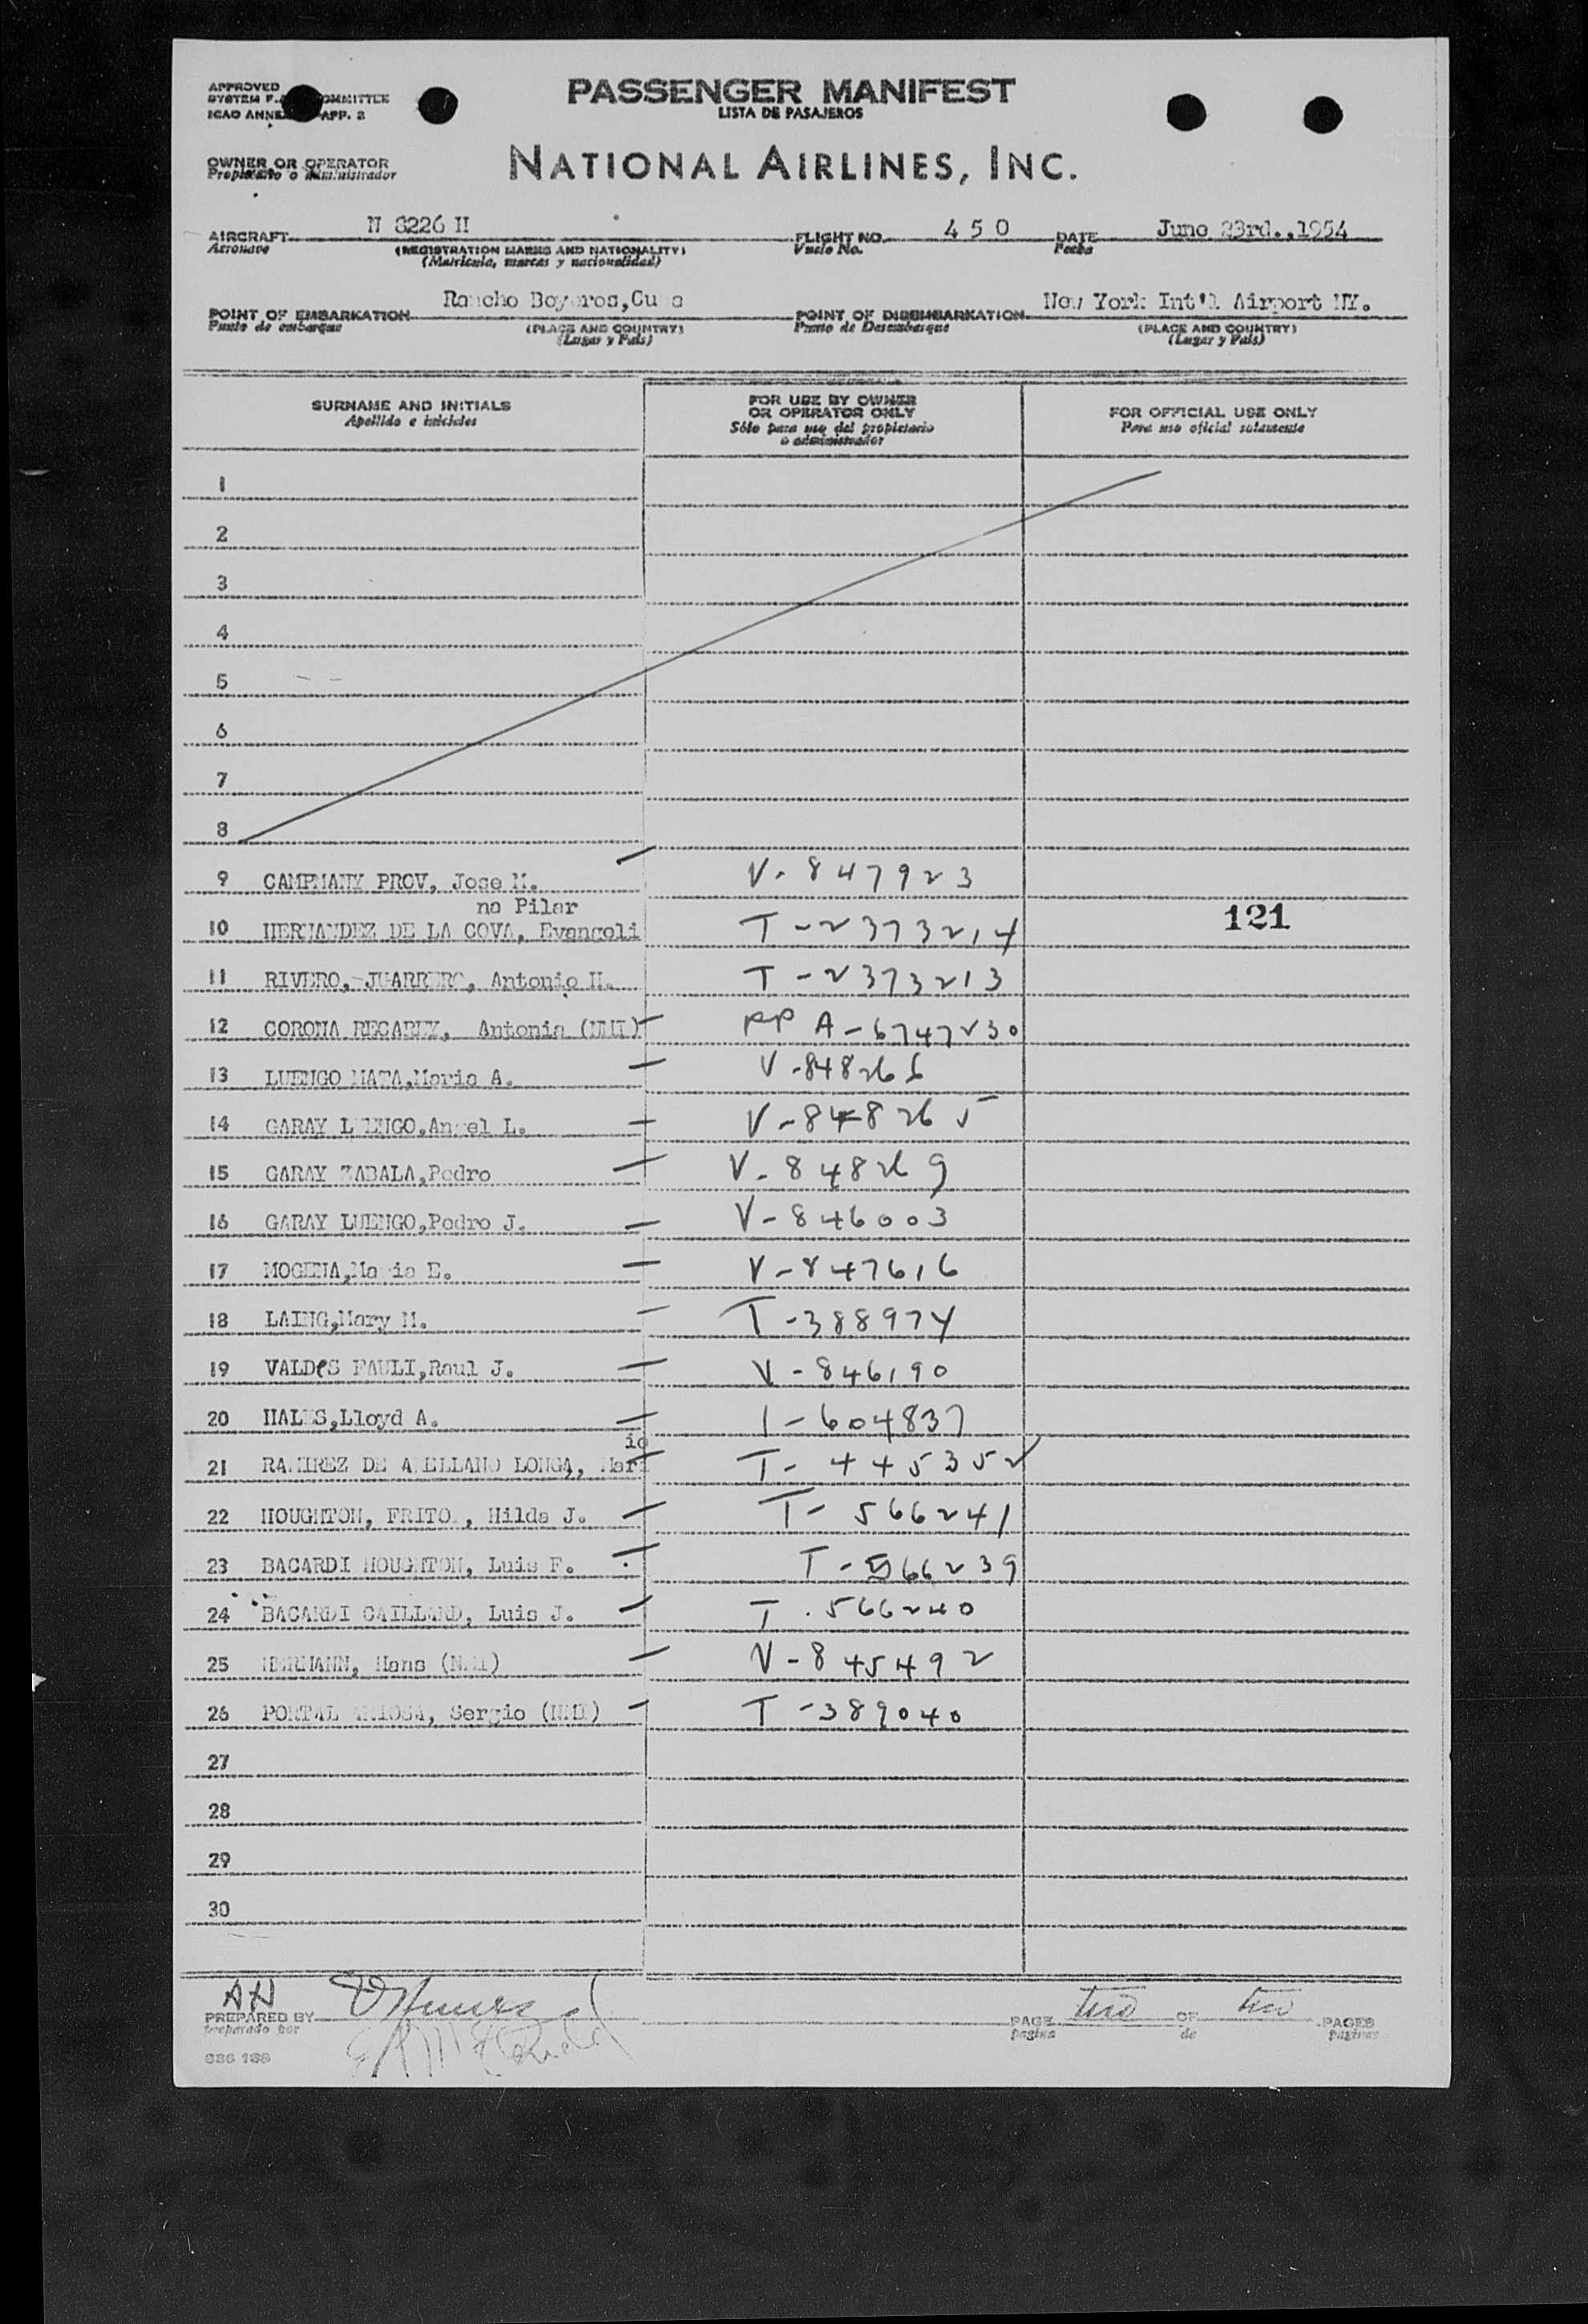 APPROVED
SYSTEM F. COMMITTEE
ICAO ANNEX APP. 2
PASSENGER MANIFEST
LISTA DE PASAJEROS
OWNER OR OPERATOR
Propietario o administrador
NATIONAL AIRLINES, INC.
AIRCRAFT N 8226 H FLIGHT NO. 4 5 0 DATE June 23rd.,1954
Aeronave (REGISTRATION MARKS AND NATIONALITY) Vuelo No. Fecha
(Matricula, marcas y nacionalidad)
POINT OF EMBARKATION Rancho Boyeros,Cuba POINT OF DISEMBARKATION New York Int'l Airport NY.
Punto de embarque (PLACE AND COUNTRY) Punto de Desembarque (PLACE AND COUNTRY)
(Lugar y País) (Lugar y País)
SURNAME AND INITIALS FOR USE BY OWNER OR OPERATOR ONLY FOR OFFICIAL USE ONLY
Apellido e iniciales Sólo para uso del propietario o administrador Para uso oficial solamente
1
2
3
4
5
6
7
8
9 CAMPMANY PROV, Jose M. V-847923
na Pilar
10 HERNANDEZ DE LA COVA, Evangeli T-2373214 121
11 RIVERO, JUARRERO, Antonio H. T-2373213
12 CORONA RECAREY, Antonia (NMI) PP A-6747230
13 LUENGO MATA,Maria A. V-848266
14 GARAY LUENGO,Angel L. V-848265
15 GARAY ZABALA,Pedro V-848269
16 GARAY LUENGO,Pedro J. V-846003
17 MOGENA,Maria E. V-847616
18 LAING,Mary M. T-388974
19 VALDeS FAULI,Raul J. V-846190
20 HALES,Lloyd A. 1-604837
io
21 RAMIREZ DE ARELLANO LONGA, Mari T-445352
22 HOUGHTON, FRITO, Hilda J. T-566241
23 BACARDI HOUGHTON, Luis F. T-566239
24 BACARDI GAILLARD, Luis J. T.566240
25 HERMANN, Hans (NMI) V-845492
26 PORTAL ARIOSA, Sergio (NMI) T-389040
27
28
29
30
AH
PREPARED BY PAGE two OF two PAGES
preparado por pagina de paginas